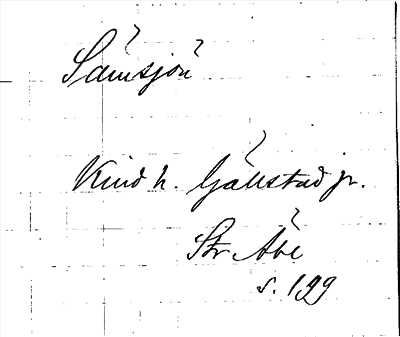 Sämsjön
Kind h. Gällstad jr.
Str Åbe
s. 199